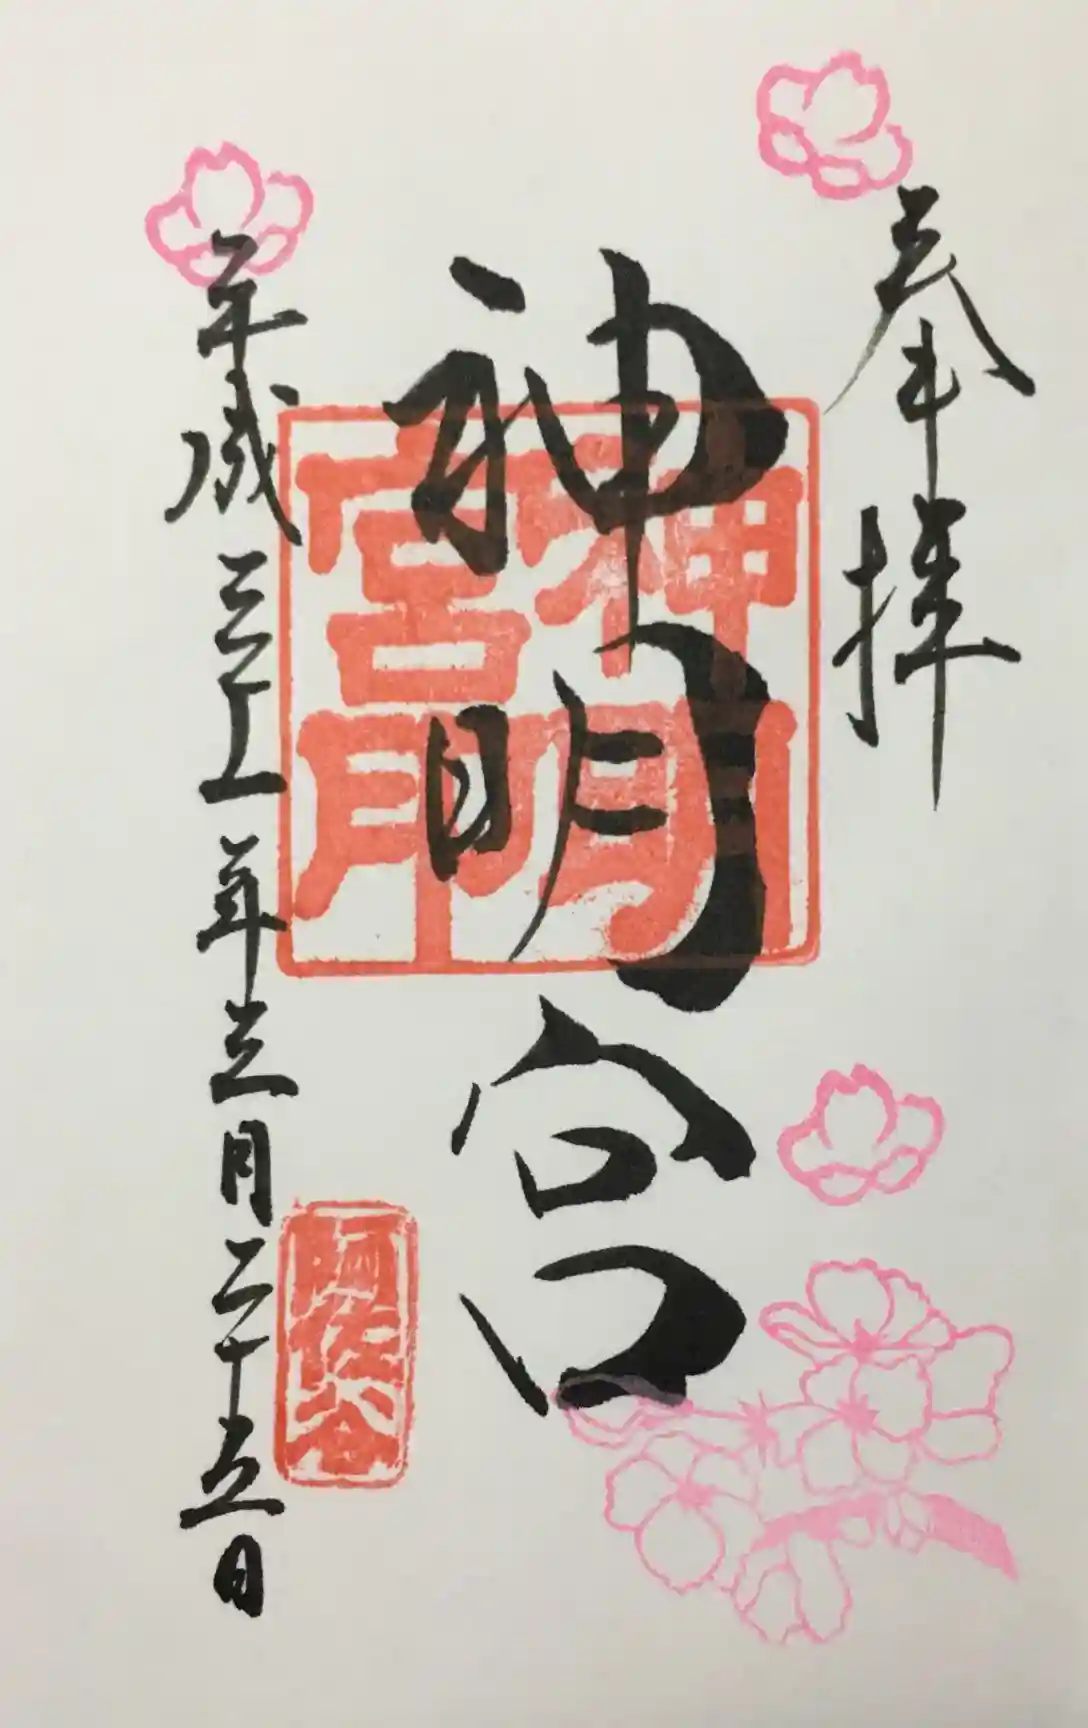 奉拝
神明宮
神明宮印
平成三十一年三月二十五日
阿佐谷